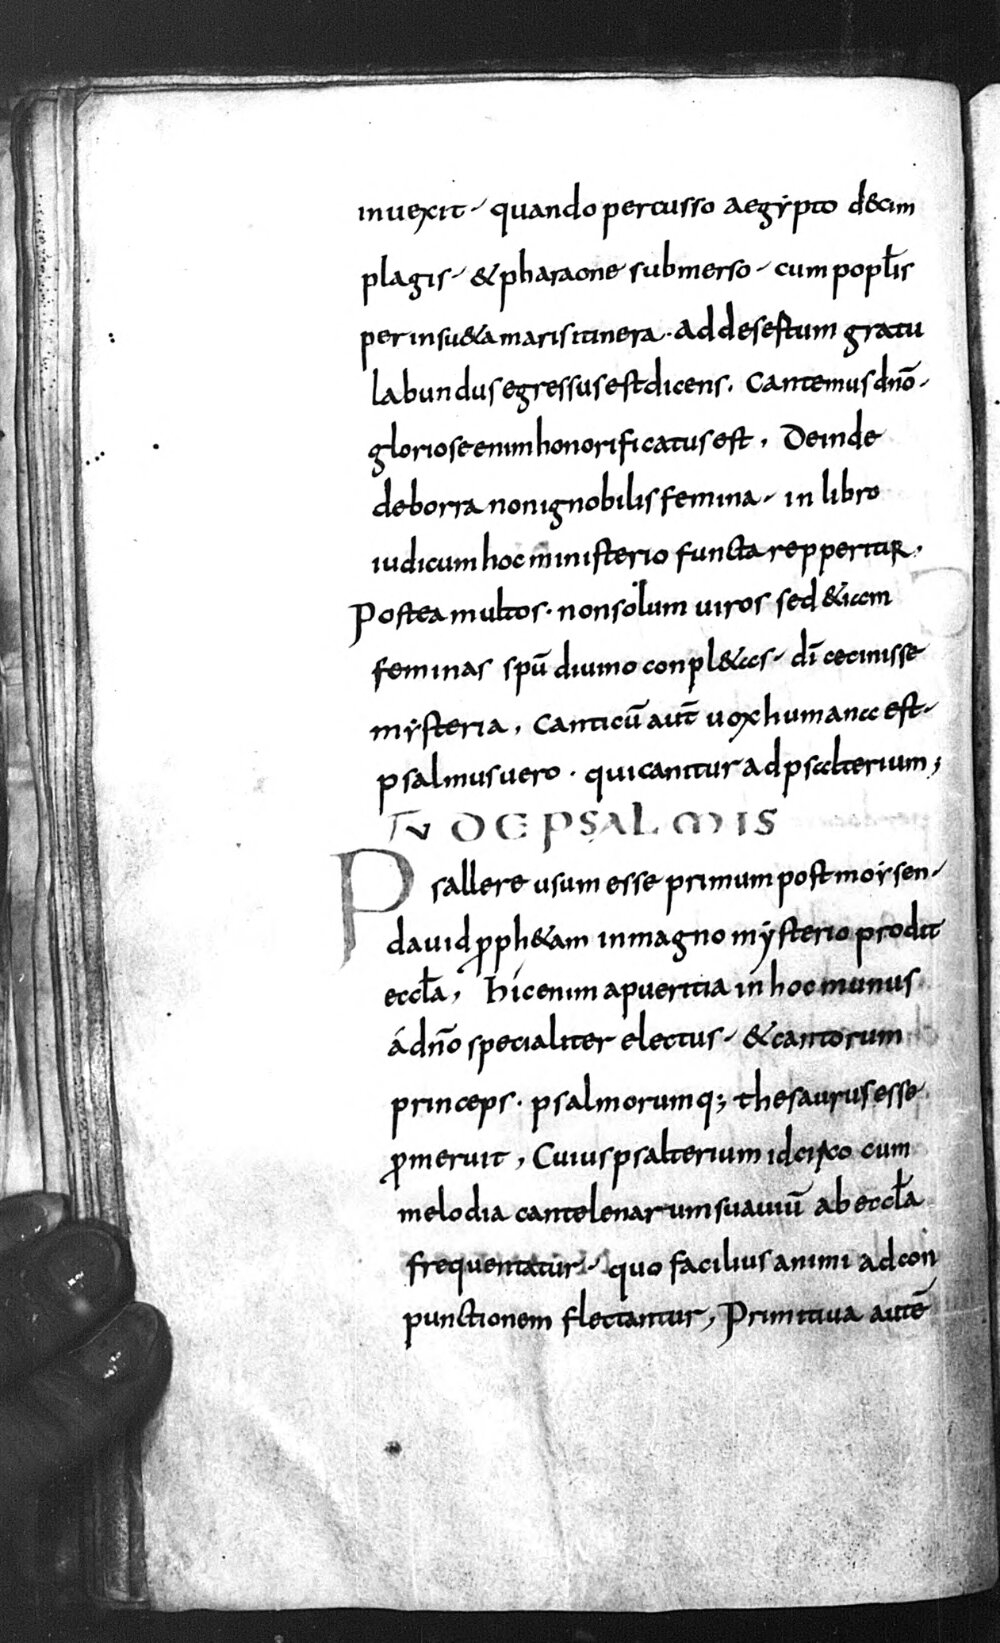 inuexit quando percusso aegẏpto d&cim
plagis & pharaone submerso cum popl̄is
per insu&a maris itinera. ad desestum gratu
labundus egressus est dicens. Cantemus dnō
gloriose enim honorificatus est, Deinde
deborra non ignobilis femina in libro
iudicum hoc ministerio functa repperitur.
Postea multos. non solum uiros sed &iam
feminas spū diuino conpl&as dī cecinisse
mẏsteria, Canticū aut̄ uox humana est
psalmus uero. qui canitur ad psalterium;
IV DE PSALMIS
Psallere usum esse primum post moẏsen
dauid ꝓph&am in magno mẏsterio prodit
eccl̄a, Hic enim a pueritia in hoc munus
á dn̄o specialiter electus & cantorum
princeps. psalmorumq; thesaurus esse
ꝓmeruit, Cuius psalterium idcirco cum
melodia cantelenarum suauiū ab eccl̄a
frequentatur quo facilius animi ad con
punctionem flectantur, Primitiua autē